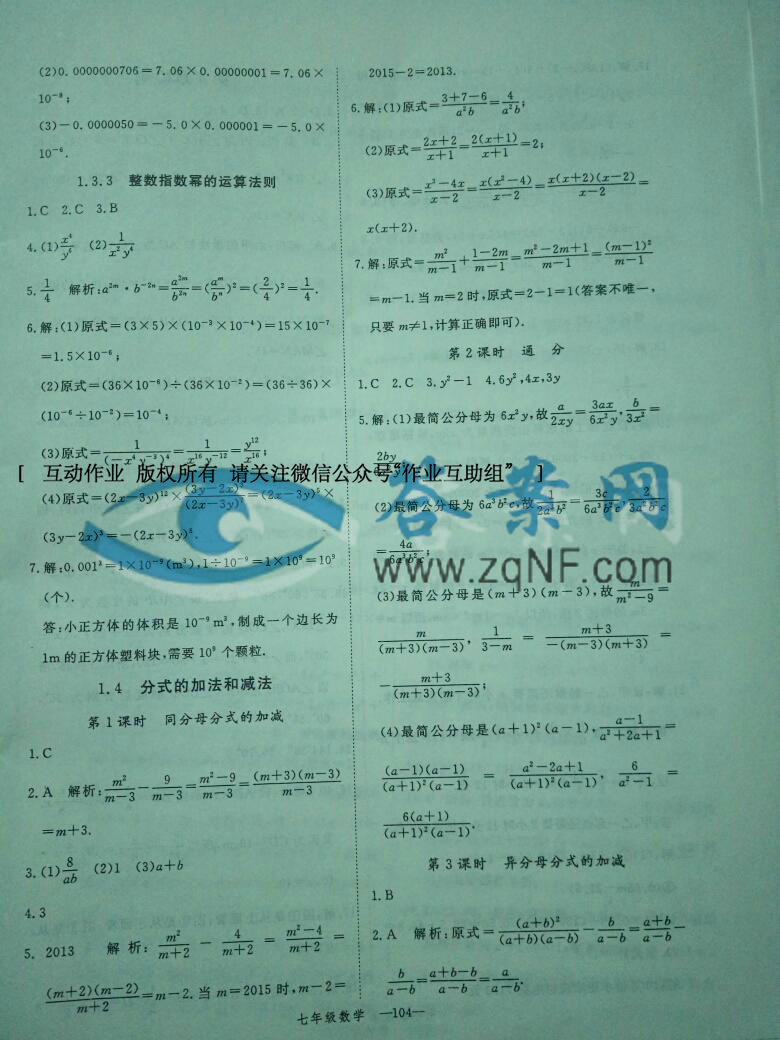 (2)0.0000000706=7.06×0.00000001=7.06×
10⁻⁸;
(3)-0.0000050=-5.0×0.000001=-5.0×
10⁻⁶.
1.3.3 整数指数幂的运算法则
1.C 2.C 3.B
4.(1)x⁴/y⁶ (2)1/(x²y⁴)
5.1/4 解析:a²ᵐ·b⁻²ⁿ=a²ᵐ/b²ⁿ=(aᵐ/bⁿ)²=(2/4)²=1/4.
6.解:(1)原式=(3×5)×(10⁻³×10⁻⁴)=15×10⁻⁷
=1.5×10⁻⁶;
(2)原式=(36×10⁻⁶)÷(36×10⁻²)=(36÷36)×
(10⁻⁶÷10⁻²)=10⁻⁴;
(3)原式=1/(-x⁴y⁻³)⁴=1/(x¹⁶y⁻¹²)=y¹²/x¹⁶
[ 互动作业 版权所有 请关注微信公众号"作业互助组" ]
(4)原式=(2x-3y)¹²×(3y-2x)³/(2x-3y)⁷=(2x-3y)⁵×
(3y-2x)³=-(2x-3y)⁸.
7.解:0.001³=1×10⁻⁹(m³),1÷10⁻⁹=1×10⁹=10⁹
(个).
答:小正方体的体积是10⁻⁹m³,制成一个边长为
1m的正方体塑料块,需要10⁹个颗粒.
1.4 分式的加法和减法
第1课时 同分母分式的加减
1.C
2.A 解析:m²/(m-3)-9/(m-3)=(m²-9)/(m-3)=(m+3)(m-3)/(m-3)
=m+3.
3.(1)8/ab (2)1 (3)a+b
4.3
5.2013 解析:m²/(m+2)-4/(m+2)=(m²-4)/(m+2)=
(m+2)(m-2)/(m+2)=m-2.当m=2015时,m-2=
2015-2=2013.
6.解:(1)原式=(3+7-6)/(a²b)=4/(a²b);
(2)原式=(2x+2)/(x+1)=2(x+1)/(x+1)=2;
(3)原式=(x³-4x)/(x-2)=x(x²-4)/(x-2)=x(x+2)(x-2)/(x-2)=
x(x+2).
7.解:原式=m²/(m-1)+(1-2m)/(m-1)=(m²-2m+1)/(m-1)=(m-1)²/(m-1)
=m-1.当m=2时,原式=2-1=1(答案不唯一,
只要m≠1,计算正确即可).
第2课时 通 分
1.C 2.C 3.y²-1 4.6y²,4x,3y
5.解:(1)最简公分母为6x²y,故a/(2xy)=3ax/(6x²y),b/(3x²)=
2by
(2)最简公分母为6a³b²c,故1/(2a³b²)=3c/(6a³b²c),2/(3a²b²c)
=4a/(6a³b²c);
(3)最简公分母是(m+3)(m-3),故m/(m²-9)=
m/((m+3)(m-3)),1/(3-m)=(m+3)/(-(m-3)(m+3))=
-(m+3)/((m+3)(m-3));
(4)最简公分母是(a+1)²(a-1),(a-1)/(a²+2a+1)=
(a-1)(a-1)/((a+1)²(a-1))=(a²-2a+1)/((a+1)²(a-1)),6/(a²-1)=
6(a+1)/((a+1)²(a-1)).
第3课时 异分母分式的加减
1.B
2.A 解析:原式=(a+b)²/((a+b)(a-b))-b/(a-b)=(a+b)/(a-b)-
b/(a-b)=(a+b-b)/(a-b)=a/(a-b).
答案网
www.zqNF.com
七年级数学 —104—